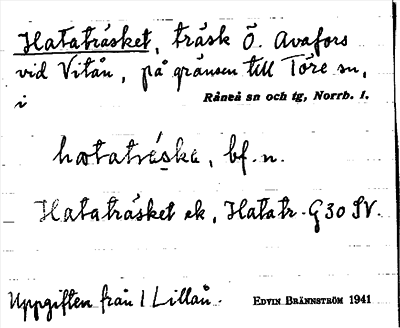 Hataträsket, träsk Ö. Avafors
vid Vitån, på gränsen till Töre sn,
i Råneå sn och tg, Norrb. l.
hataträske, bf. n.
Hataträsket ek, Hatatr. G30 SV.
Uppgiften från 1 Lillån. EDVIN BRÄNNSTRÖM 1941